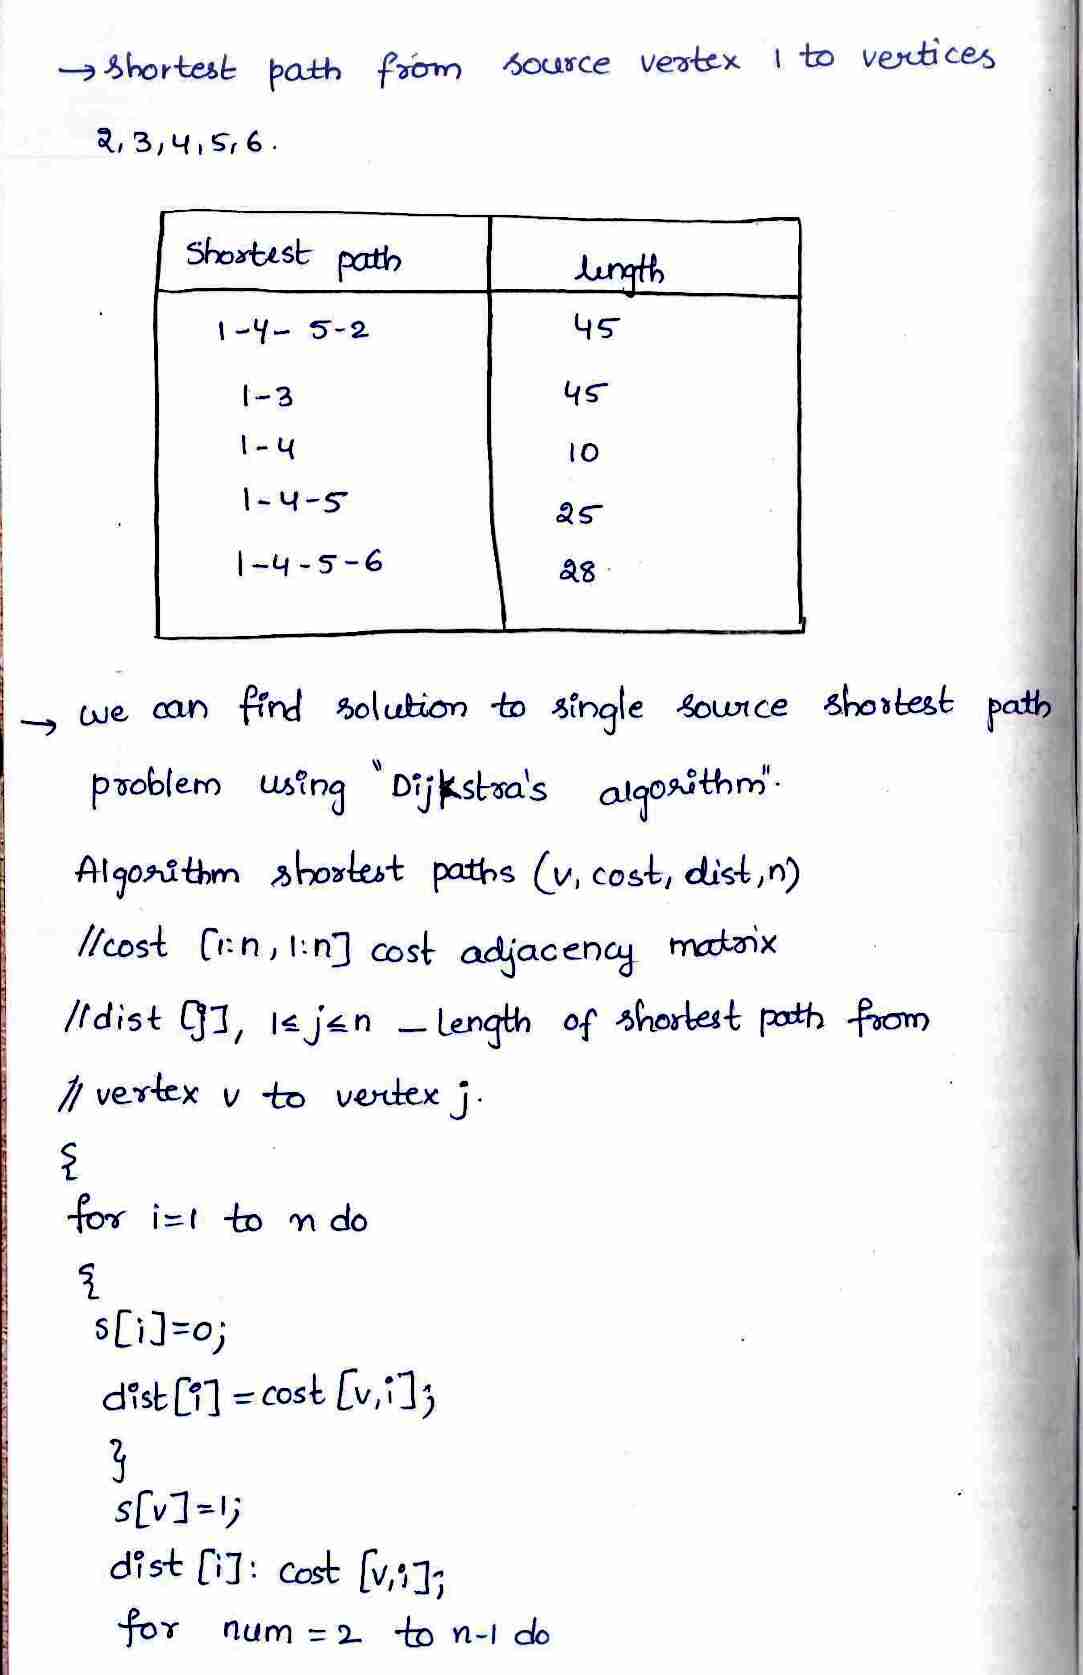 → shortest path from source vertex 1 to vertices
2, 3, 4, 5, 6.
Shortest path length
1-4-5-2 45
1-3 45
1-4 10
1-4-5 25
1-4-5-6 28
→ we can find solution to single source shortest path
problem using "Dijkstra's algorithm".
Algorithm shortest paths (v, cost, dist, n)
//cost [1:n, 1:n] cost adjacency matrix
//dist [j], 1≤j≤n - length of shortest path from
// vertex v to vertex j.
{
for i=1 to n do
{
s[i]=0;
dist[i] = cost [v,i];
}
s[v]=1;
dist [i]: cost [v,i];
for num = 2 to n-1 do